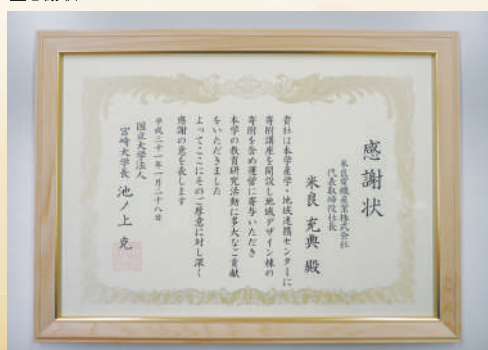 感謝状
米良電機産業株式会社
代表取締役社長
米良充典殿
貴社は本学産学・地域連携センターに
寄附講座を開設し地域デザイン棟の
寄附を含め運営に寄与いただき
本学の教育研究活動に多大なご貢献
をいただきました
よってここにそのご厚意に対し深く
感謝の意を表します
平成三十一年一月二十八日
国立大学法人
宮崎大学長 池ノ上克